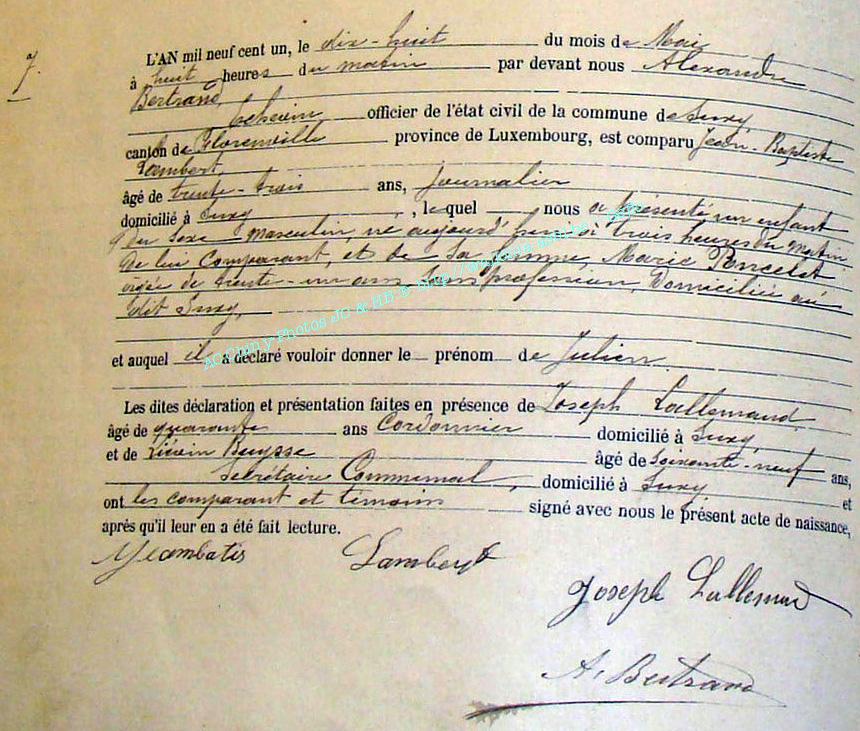 7.
L'AN mil neuf cent un, le dix-huit du mois de Mai
à huit heures du matin par devant nous Alexandre
Bertrand,
Echevin officier de l'état civil de la commune de Suxy,
canton de Florenville province de Luxembourg, est comparu Jean-Baptiste
Lambert,
âgé de trente-trois ans, journalier
domicilié à Suxy, lequel nous a présenté un enfant
du sexe masculin, né aujourd'hui à trois heures du matin,
de lui comparant, et de sa femme, Marie Poncelet
âgée de trente-un ans sans profession, Domiciliée au
dit Suxy,
et auquel il a déclaré vouloir donner le prénom de Julien.
Les dites déclaration et présentation faites en présence de Joseph Lallemand,
âgé de quarante ans Cordonnier domicilié à Suxy,
et de Liévin Buysse âgé de soixante-neuf ans,
Secrétaire Communal, domicilié à Suxy, et
ont les comparant et témoins signé avec nous le présent acte de naissance,
après qu'il leur en a été fait lecture.
Lambert
Joseph Lallemand
A. Bertrand